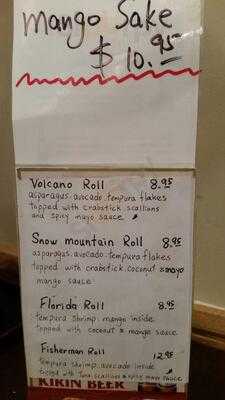 Mango Sake
$ 10.95
Volcano Roll 8.95
asparagus. avocado. tempura flakes
topped with crabstick scallions
and spicy mayo sauce
Snow mountain Roll 8.95
asparagus. avocado. tempura flakes
topped with crabstick. coconut & mayo
mango sauce
Florida Roll 8.95
tempura shrimp. mango inside.
topped with coconut & mango sauce
Fisherman Roll 12.95
tempura shrimp. avocado inside
topped with tuna. scallions & spicy mayo sauce
KIRIN BEER